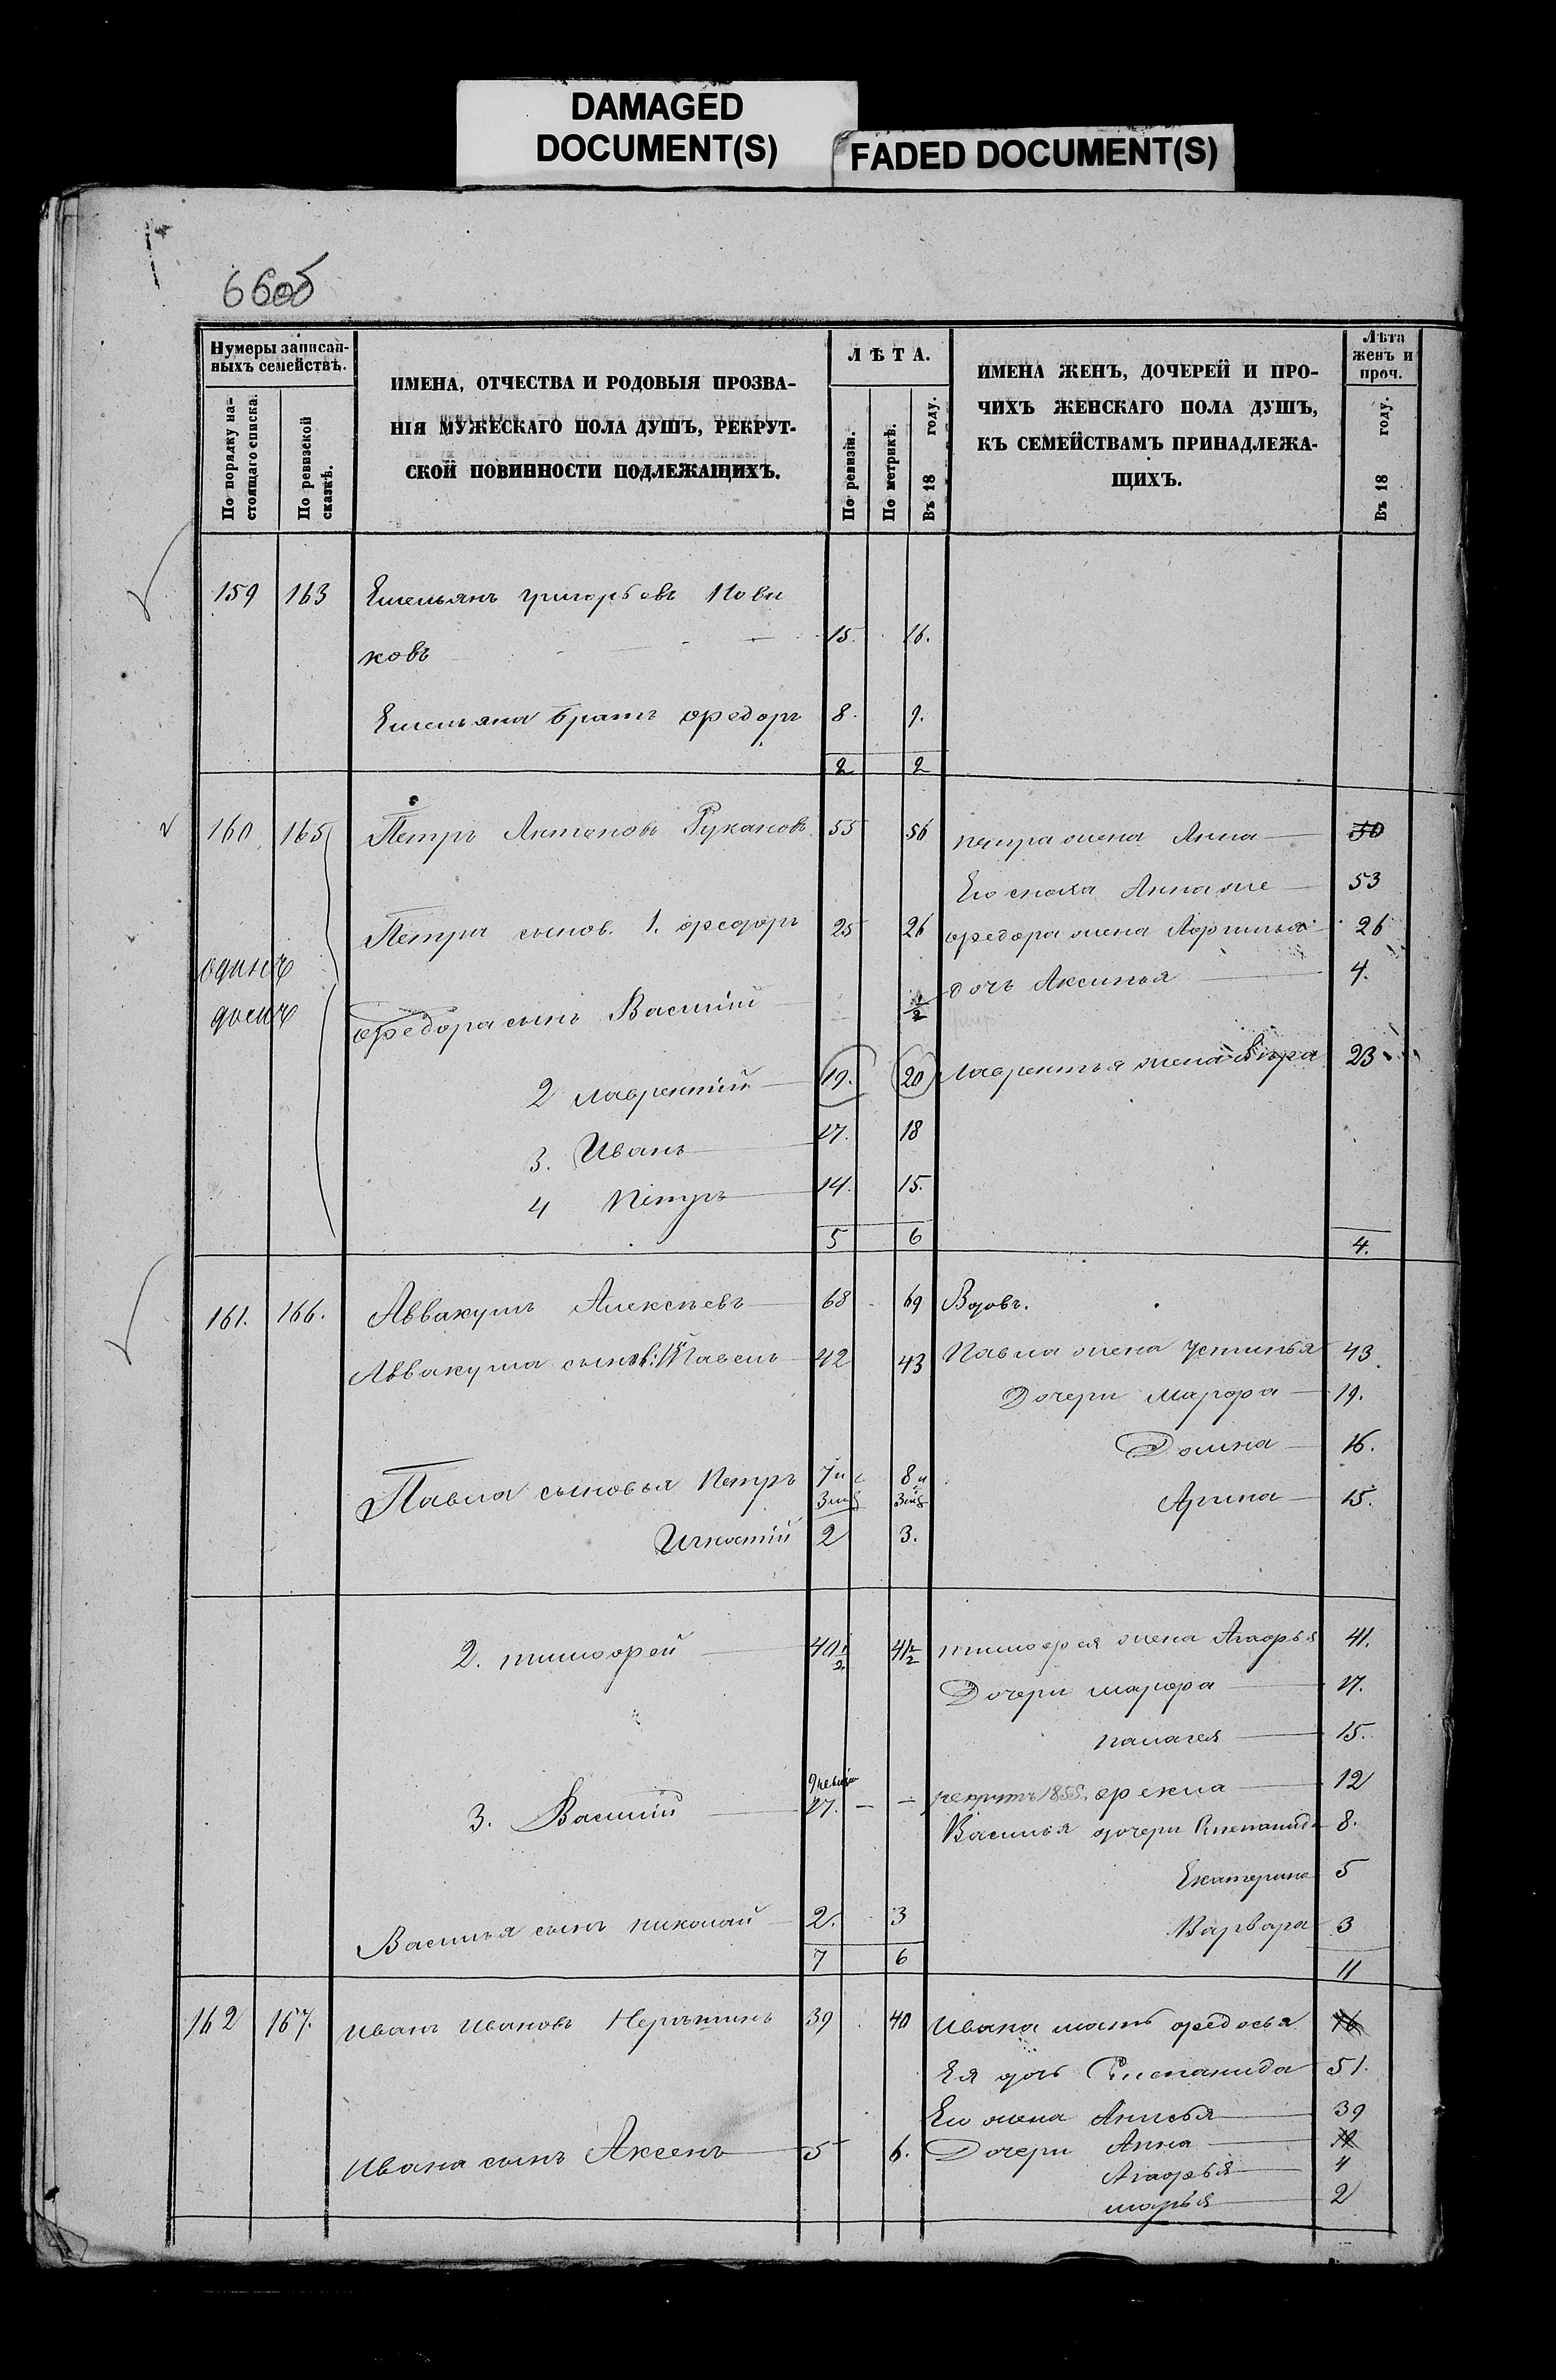 DAMAGED
DOCUMENT(S)
FADED DOCUMENT(S)
66об
Нумеры записан-
ныхъ семействъ.
По порядку на-
стоящаго списка.
По ревизской
сказкѣ.
ИМЕНА, ОТЧЕСТВА И РОДОВЫЯ ПРОЗВА-
НІЯ МУЖЕСКАГО ПОЛА ДУШЪ, РЕКРУТ-
СКОЙ ПОВИННОСТИ ПОДЛЕЖАЩИХЪ.
ЛѢТА.
По ревизіи.
По метрикѣ.
Въ 18 году.
ИМЕНА ЖЕНЪ, ДОЧЕРЕЙ И ПРО-
ЧИХЪ ЖЕНСКАГО ПОЛА ДУШЪ,
КЪ СЕМЕЙСТВАМЪ ПРИНАДЛЕЖА-
ЩИХЪ.
Лѣта
женъ и
проч.
Въ 18 году.
159 163 Емельянъ Григорьевъ Нови
ковъ 15. 16.
Емельяна братъ Федоръ 8. 9.
2 2
160 165 Петръ Антоновъ Рукановъ 55 56 Петра жена Анна 50
Его сноха Анна же 53
Петра сынов. 1. Федоръ 25 26 Федора жена 26
одинъ
дочь Аксинья 4.
Федора сынъ Василій 1/2
2 Лаврентій 19. 20 Лаврентья жена Вѣра 23
3. Иванъ 17. 18
4 Петръ 14. 15.
5 6 4.
161. 166. Аввакумъ Алексѣевъ 68 69 Вдовъ.
Аввакума сынов: 1й Павелъ 42 43 Павла жена Устинья 43
Дочери Марфа 19.
Домна 16.
Павла сыновья Петръ 7 и 3 мѣс 8 и 3 мѣс Арина 15.
Игнатій 2 3.
2. Тимофей 40 1/2 41 1/2 Тимофея жена Агафья 41.
Дочери Марфа 17.
Палагея 15.
3. Василій 27. — — рекрутъ 1855. Фекла 12
Василья дочери Степанида 8.
Екатерина 5
Василья сынъ Николай 2. 3 Варвара 3
7 6 11
162 167. Иванъ Ивановъ 39 40 Ивана мать Федосья 76
Ея дочь Степанида 51.
Его жена Анисья 39
Ивана сынъ Аксенъ 5 6. Дочери Анна
Агафья 4
Марья 2